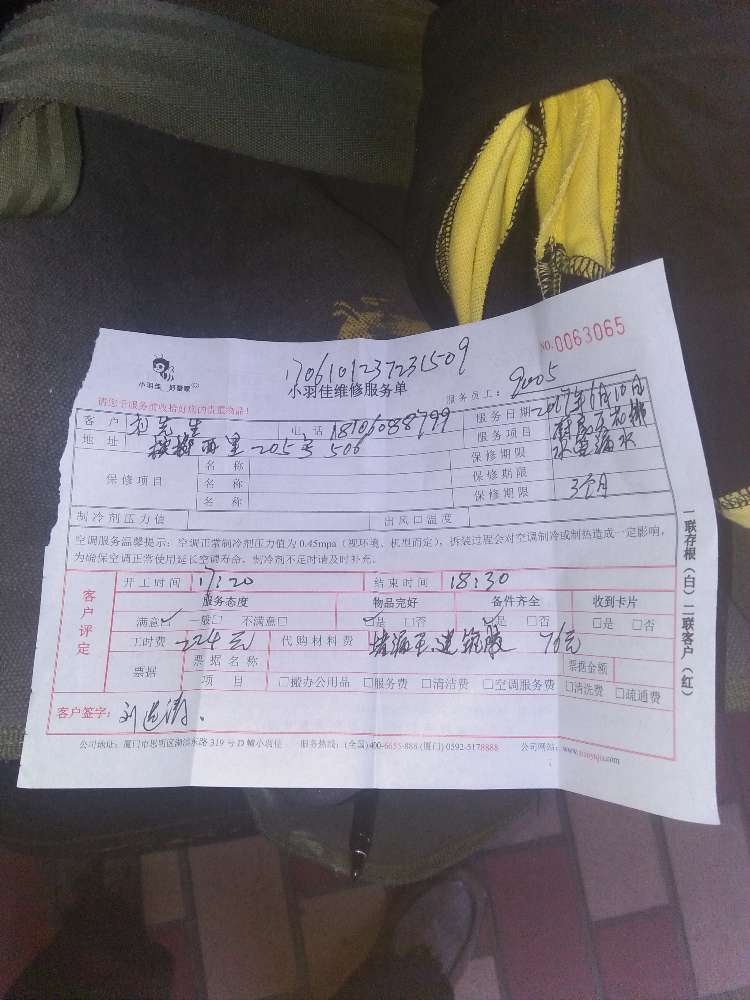 NO.0063065
170610123731509
小羽佳 好管家
小羽佳维修服务单
服务员工: 9005
请您于服务前收拾好您的贵重物品!
客户 先生 电话 18106088799 服务日期 2017年6月10日
地址 西里205号506 服务项目 水管漏水
保修项目 名称 保修期限
名称 保修期限
名称 保修期限 3个月
制冷剂压力值 出风口温度
空调服务温馨提示:空调正常制冷剂压力值为0.45mpa(视环境、机型而定),拆装过程会对空调制冷或制热造成一定影响,
为确保空调正常使用延长空调寿命,制冷剂不足时请及时补充。
客户评定
开工时间 17:20 结束时间 18:30
服务态度 物品完好 备件齐全 收到卡片
满意☑ 一般□ 不满意□ ☑是 □否 ☑是 □否 □是 □否
工时费 224元 代购材料费 堵漏王. 玻璃胶 76元
票据 票据名称 票据金额
项目 □搬办公用品 □服务费 □清洁费 □空调服务费 □清洗费 □疏通费
客户签字:
公司地址:厦门市思明区湖滨东路319号D幢小羽佳 服务热线:(全国)400-6655-888 (厦门) 0592-5178888 公司网站:www.xiaoyujia.com
一联存根(白) 二联客户(红)